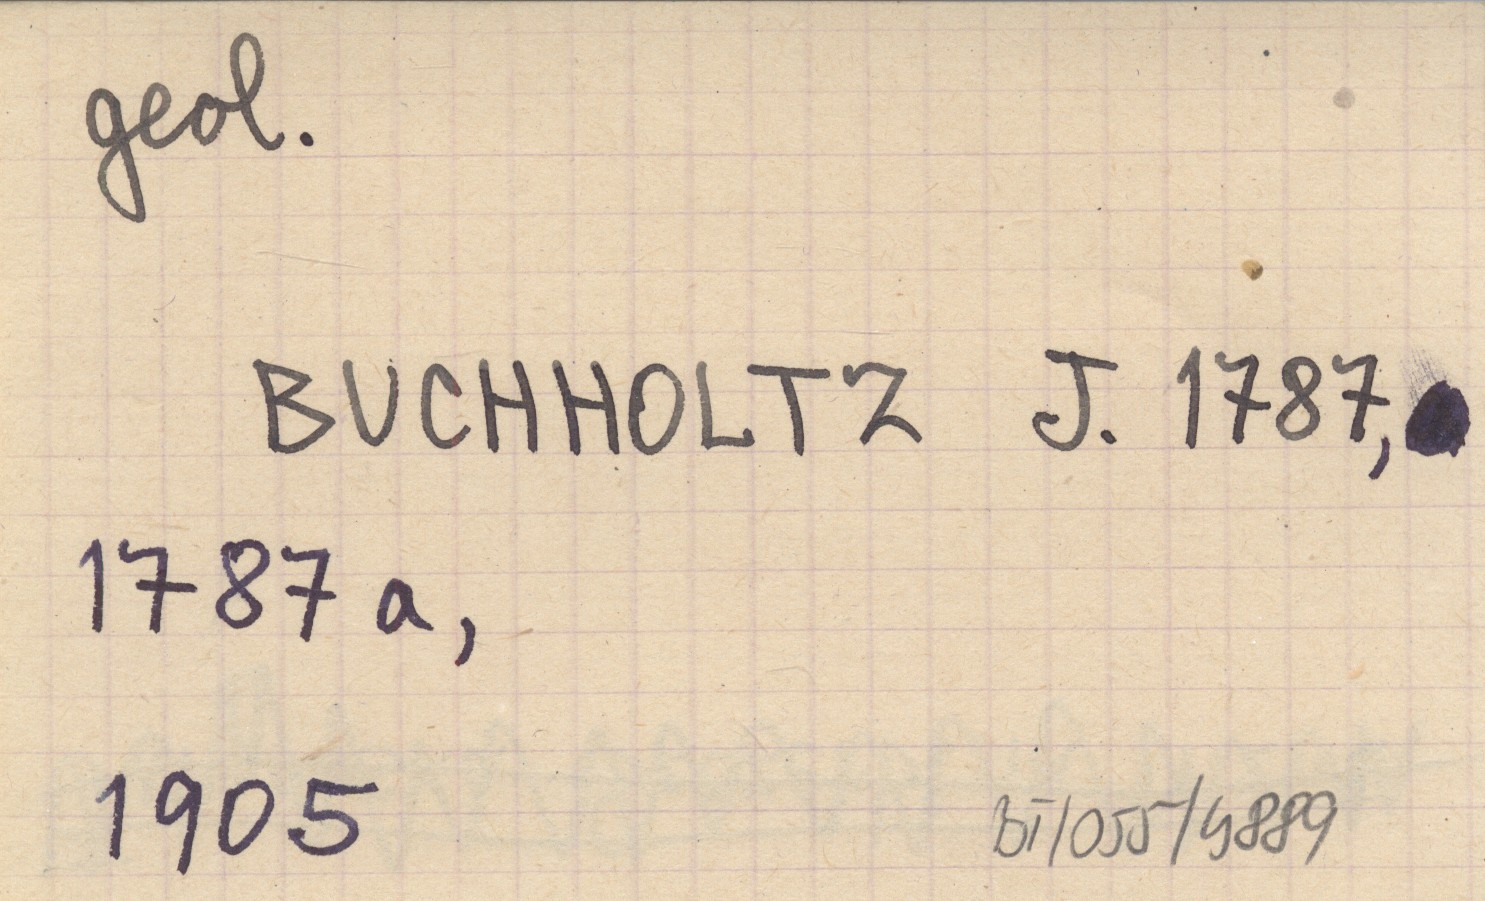 geol.
BUCHHOLTZ J. 1787,
1787 a,
1905
BI/055/4889